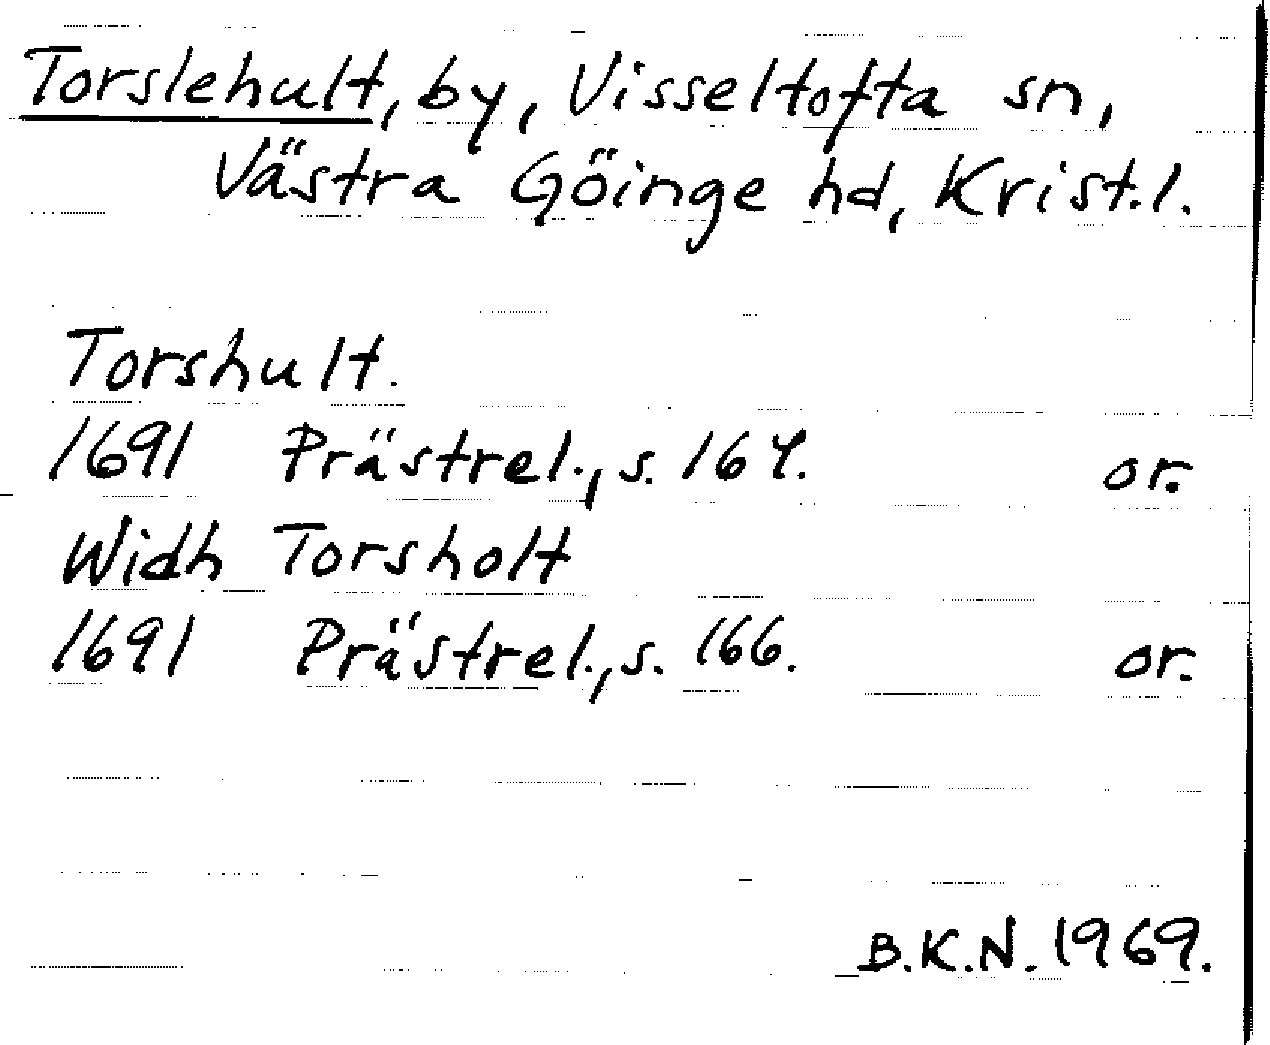 Torslehult, by, Visseltofta sn,
Västra Göinge hd, Krist.l.
Torshult.
1691 Prästrel., s. 164. or.
Widh Torsholt
1691 Prästrel., s. 166. or.
B.K.N. 1969.